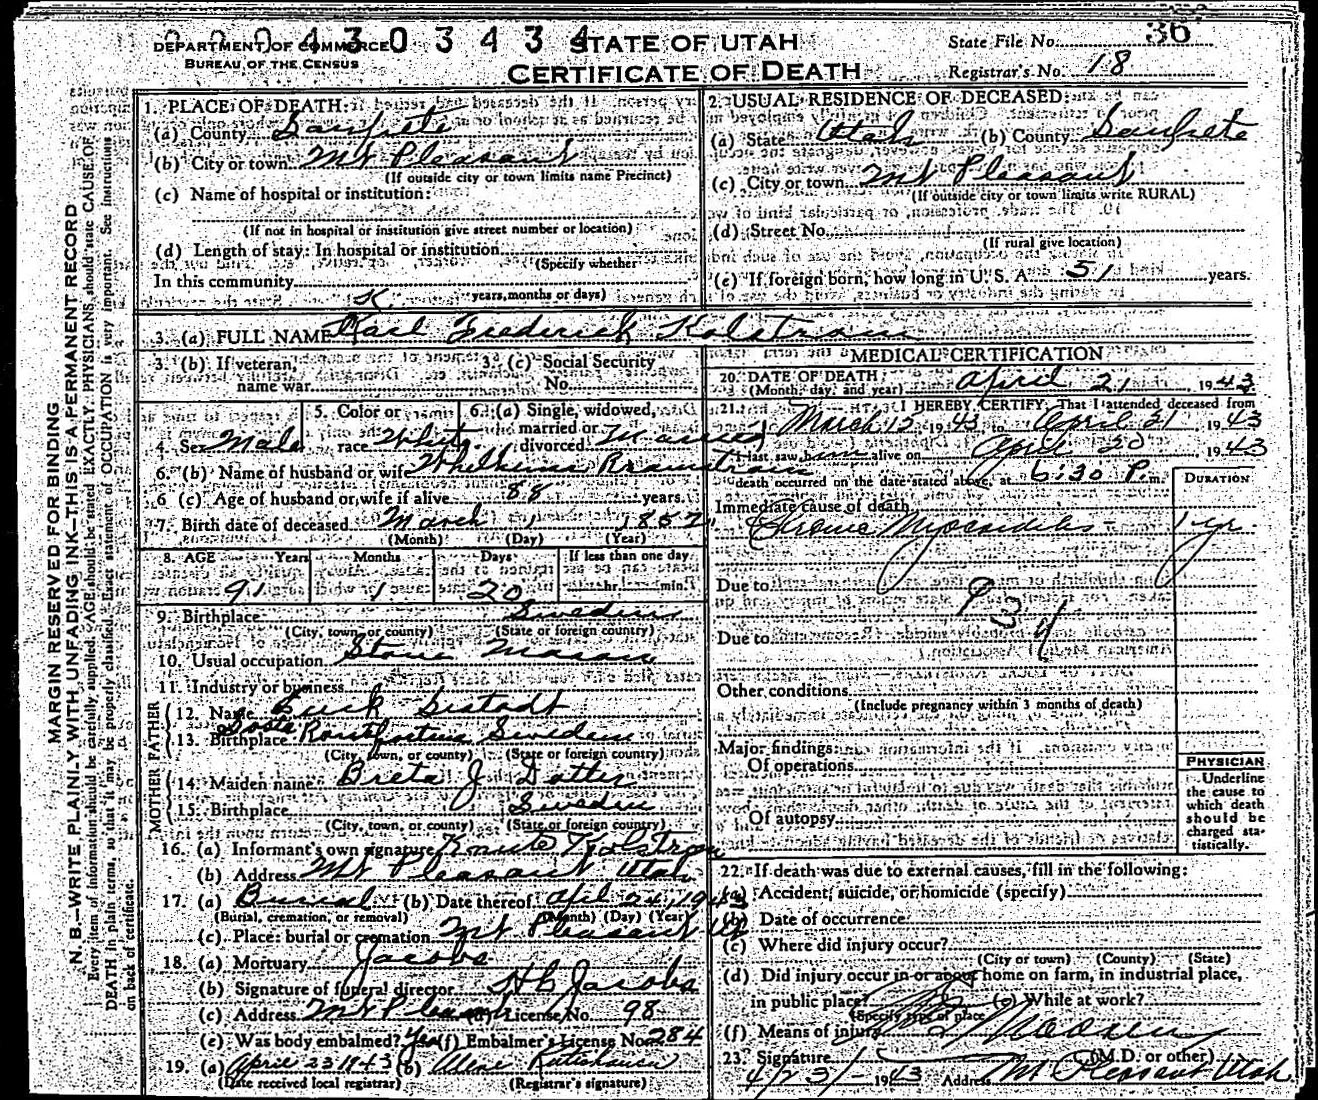 DEPARTMENT OF COMMERCE
BUREAU OF THE CENSUS
STATE OF UTAH
CERTIFICATE OF DEATH
State File No. 36
Registrar's No. 18
MARGIN RESERVED FOR BINDING
N. B.—WRITE PLAINLY WITH UNFADING INK—THIS IS A PERMANENT RECORD
Every item of information should be carefully supplied. AGE should be stated EXACTLY. PHYSICIANS should state CAUSE OF
DEATH in plain terms, so that it may be properly classified. Exact statement of OCCUPATION is very important. See instructions
on back of certificate.
1. PLACE OF DEATH:
(a) County Sanpete
(b) City or town Mt Pleasant
(If outside city or town limits name Precinct)
(c) Name of hospital or institution:
(If not in hospital or institution give street number or location)
(d) Length of stay: In hospital or institution
(Specify whether
In this community
years, months or days)
2. USUAL RESIDENCE OF DECEASED:
(a) State Utah (b) County Sanpete
(c) City or town Mt Pleasant
(If outside city or town limits write RURAL)
(d) Street No.
(If rural give location)
(e) If foreign born, how long in U. S. A. 51 years.
3. (a) FULL NAME Karl Frederick Kolstrom
3. (b) If veteran, name war
3. (c) Social Security No.
4. Sex Male
5. Color or race White
6. (a) Single, widowed, married or divorced Married
6. (b) Name of husband or wife
6 (c) Age of husband or wife if alive 88 years.
7. Birth date of deceased March 1 1852
(Month) (Day) (Year)
8. AGE Years Months Days If less than one day
91 1 20 hr. min.
9. Birthplace Sweden
(City, town, or county) (State or foreign country)
10. Usual occupation Stone Mason
11. Industry or business
FATHER
12. Name
13. Birthplace Sweden
(City, town, or county) (State or foreign country)
MOTHER
14. Maiden name Breta J Dotter
15. Birthplace Sweden
(City, town, or county) (State or foreign country)
16. (a) Informant's own signature
(b) Address Mt Pleasant Utah
17. (a) Burial (b) Date thereof April 24, 1943
(Burial, cremation, or removal) (Month) (Day) (Year)
(c) Place: burial or cremation Mt Pleasant
18. (a) Mortuary Jacobs
(b) Signature of funeral director Jacobs
(c) Address Mt Pleasant (d) License No. 98
(e) Was body embalmed? Yes (f) Embalmer's License No. 284
19. (a) April 23 1943 (b)
(Date received local registrar) (Registrar's signature)
MEDICAL CERTIFICATION
20. DATE OF DEATH: (Month, day, and year) April 21, 1943
21. I HEREBY CERTIFY, That I attended deceased from
March 12, 1943 to April 21, 1943
I last saw him alive on April 20 1943
death occurred on the date stated above, at 6:30 P. m.
DURATION
Immediate cause of death
Chronic Myocarditis 1 yr
Due to
93
Due to
Other conditions
(Include pregnancy within 3 months of death)
Major findings:
Of operations
Of autopsy
PHYSICIAN
Underline
the cause to
which death
should be
charged sta-
tistically.
22. If death was due to external causes, fill in the following:
(a) Accident, suicide, or homicide (specify)
(b) Date of occurrence
(c) Where did injury occur?
(City or town) (County) (State)
(d) Did injury occur in or about home on farm, in industrial place,
in public place? (e) While at work?
(Specify type of place)
(f) Means of injury
23. Signature (M. D. or other)
4/23/- 1943 Address Mt Pleasant Utah